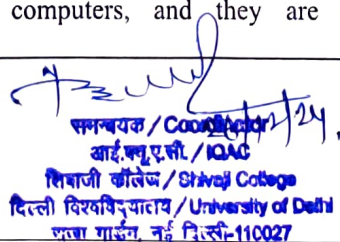 computers, and they are
समन्वयक / Coordinator
आई.क्यू.ए.सी. / IQAC
शिवाजी कॉलेज / Shivaji College
दिल्ली विश्वविद्यालय / University of Delhi
राजा गार्डन, नई दिल्ली-110027